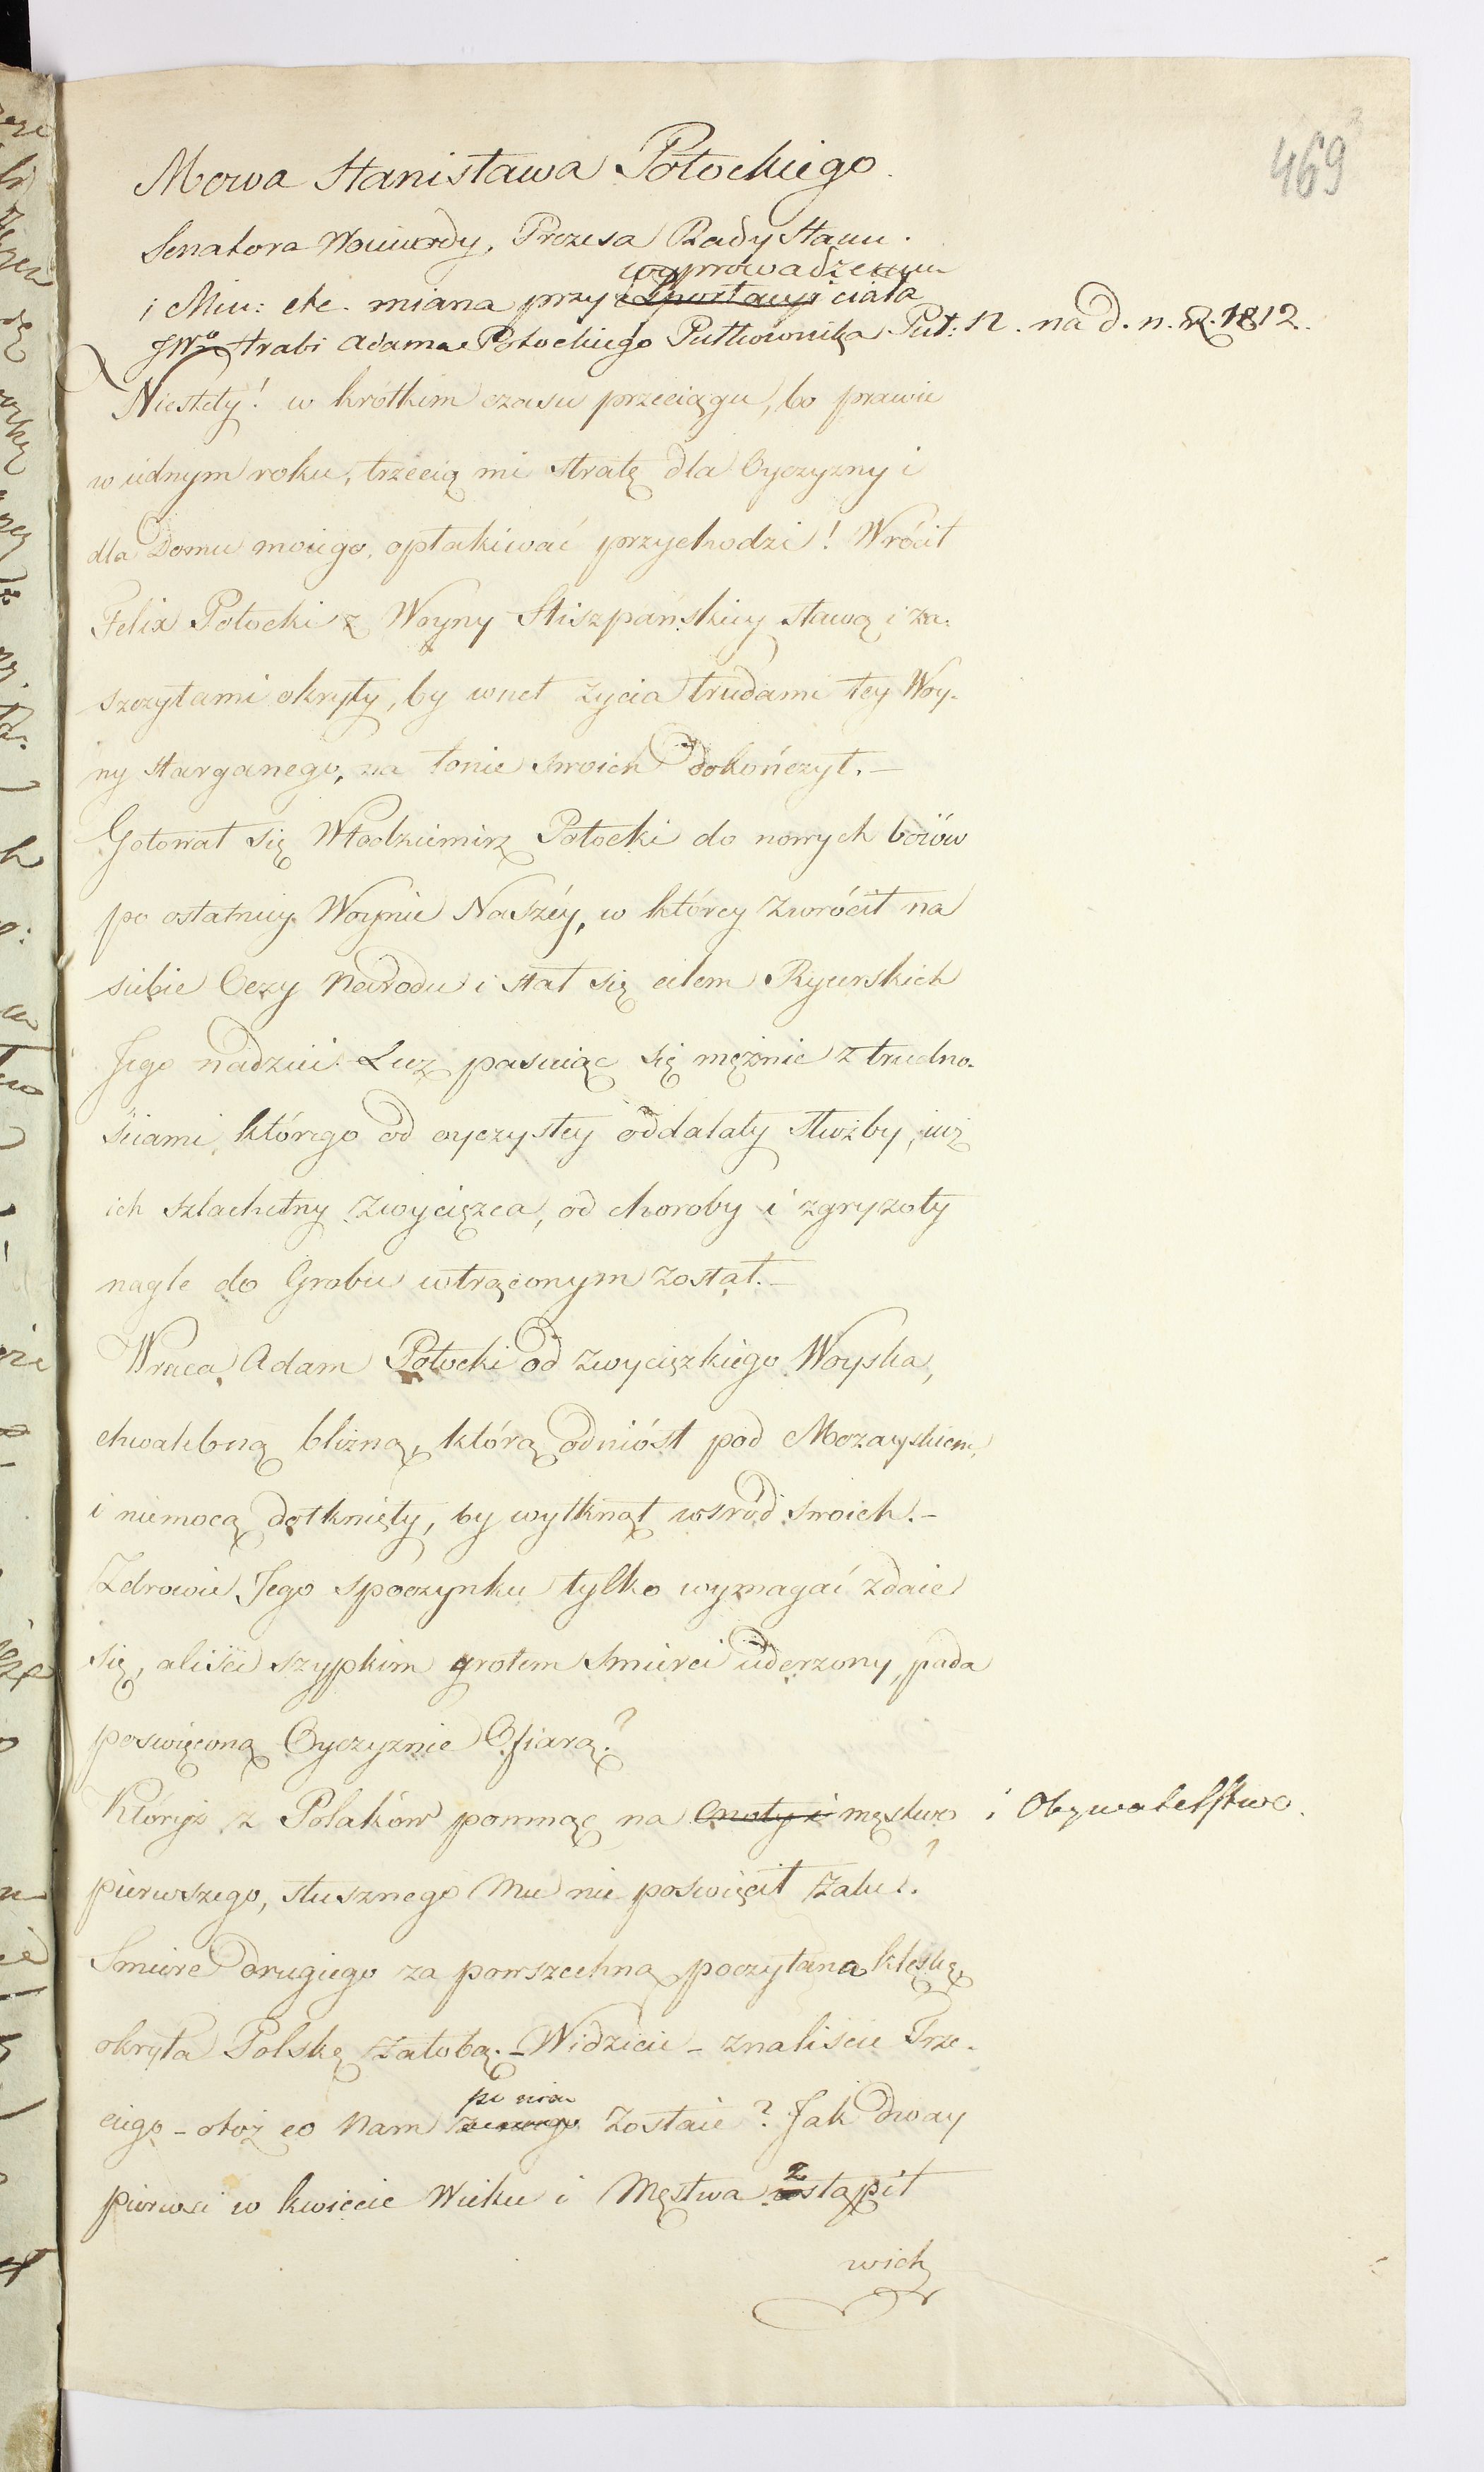 469
Mowa Stanisława Potockiego.
Senatora Woiewody, Prezesa Rady Stanu.
wyprowadzeniu
i Min: etc. miana przy exportacyi ciała
JWo Hrabi Adama Potockiego Pułkownika Puł: 11. na d. n. R. 1812.
Niestety! w krótkim czasu przeciągu, bo prawie
w iednym roku, trzecią mi stratę dla Oyczyzny i
dla Domu moiego, opłakiwać przychodzi! Wrócił
Felix Potocki z Woyny Hiszpańskiey sławą i za-
szczytami okryty, by wnet życia trudami tey Woy-
ny starganego, na łonie swoich dokończył.—
Gotował się Włodzimirz Potocki do nowych boiów
po ostatniey Woynie Naszéy, w którey zwrócił na
siebie Oczy Narodu i stał się celem Rycerskich
Jego nadziei. Lecz pasuiąc się mężnie z trudno-
ściami którego od oyczystey oddalały służby, iuż
ich szlachetny zwycięzca, od choroby i zgryzoty
nagle do Grobu wtrąconym został.—
Wraca Adam Potocki od zwycięzkiego Woyska,
chwalebną blizną, którą odniósł pod Mozayskiem,
i niemocą dotknięty, by wytknął wsród swoich.—
Zdrowie Jego spoczynku tylko wymagać zdaie
się, aliści szypkim grotem smierci uderzony, pada
poswięconą Oyczyznie Ofiarą?
Któryż z Polaków pomnąc na Cnoty i męstwo i Obywatelstwo.
pierwszego, słusznego Mu nie poswięcił żalu?
Smierć drugiego za powszechną poczytana klęskę
okryła Polskę żałobą.— Widzicie – znaliście Trze-
ciego – otoż co Nam po nim zostaie? Jak dway
pierwsi w kwiecie Wieku i Męstwa zstąpił
wich